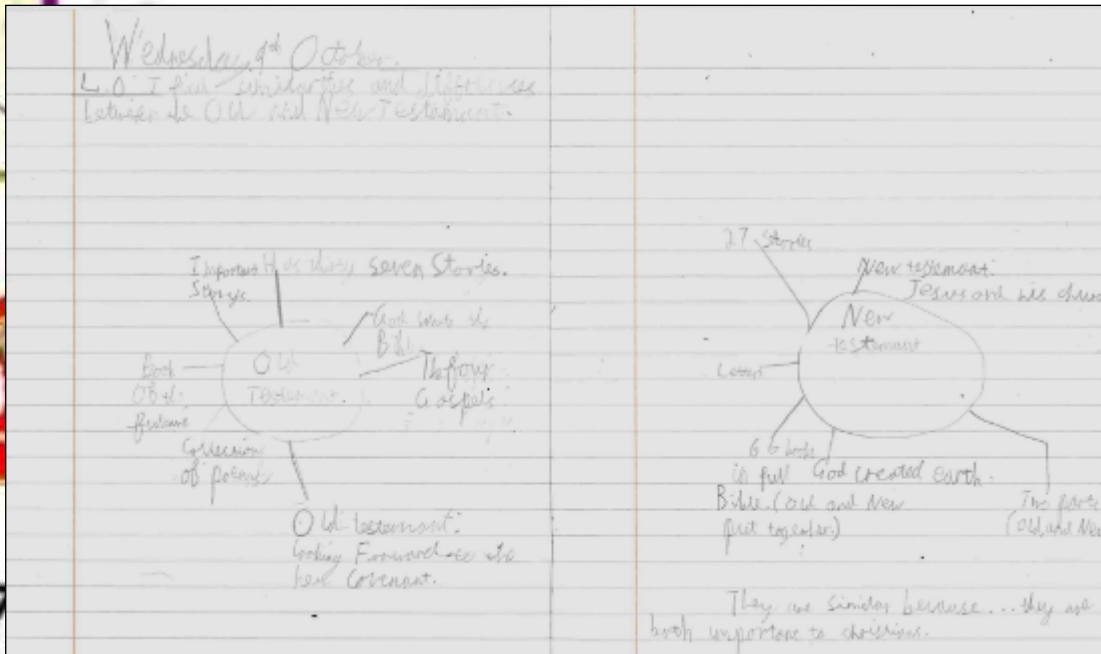 Wednesday, 9th October.
L.O I find similarities and differences
between the Old and New Testament.
Important
Storys.
Has thirty seven Stories.
God
Bible
The four
Gospels
Old
Testament.
Book
Of
Collection
of
Old testament:
looking Forward to the
new Covenant.
27 Stories
New testament:
Jesus and his
New
testament
Letters
66 books
is full
Bible. (Old and New
put together.)
God created earth.
Two parts
(Old, and New
They are similar because... they are
both important to christians.